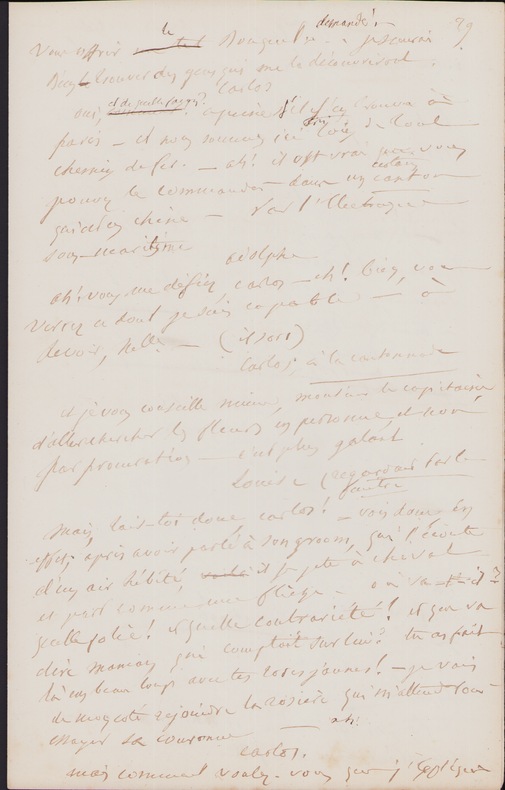 demandé! - 29
vous offrir le Bouquet - je saurai
bien trouver des gens qui me le découvriront.
Carlos
oui et de quelle façon? à peine s'il se trouve à
paris - et nous sommes ici loin de tout
chemin de fer. - ah! il est vrai que vous
pouvez le commander dans un certain canton
qui de la chine - par l'électrique
sous-maritime
adolphe
ah! vous me défiez carlos - eh! bien, vous
verrez ce dont je suis capable - à
devoir, Mlle. - (il sort)
Carlos, à la cantonnade
et je vous conseille même, monsieur le capitaine
d'aller chercher les fleurs en personne, et non
par procuration - c'est plus galant
Louise (regardant par la
mais, tais-toi donc carlos! - vois donc, en
effet, après avoir parlé à son groom, qui l'écoute
d'un air hébété il se jette à cheval
et part comme une flèche - où va-t-il?
quelle folie! et quelle contrariété! et que va
dire maman qui comptait sur lui? tu as fait
là un beau coup avec tes roses jaunes! - je vais
de mon coté rejoindre la rosière qui m'attend pour
essayer sa couronne
ah!
carlos.
mais comment voulez-vous que j'explique